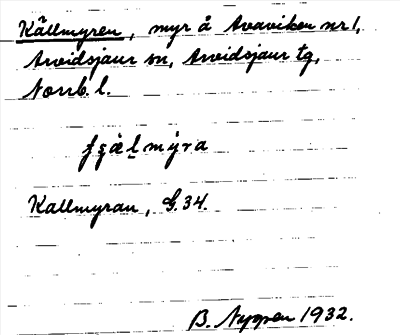 Källmyren, myr å Avaviken nr 1,
Arvidsjaur sn, Arvidsjaur tg,
Norrb. l.
Kallmyran, G. 34.
B. Nygren 1932.